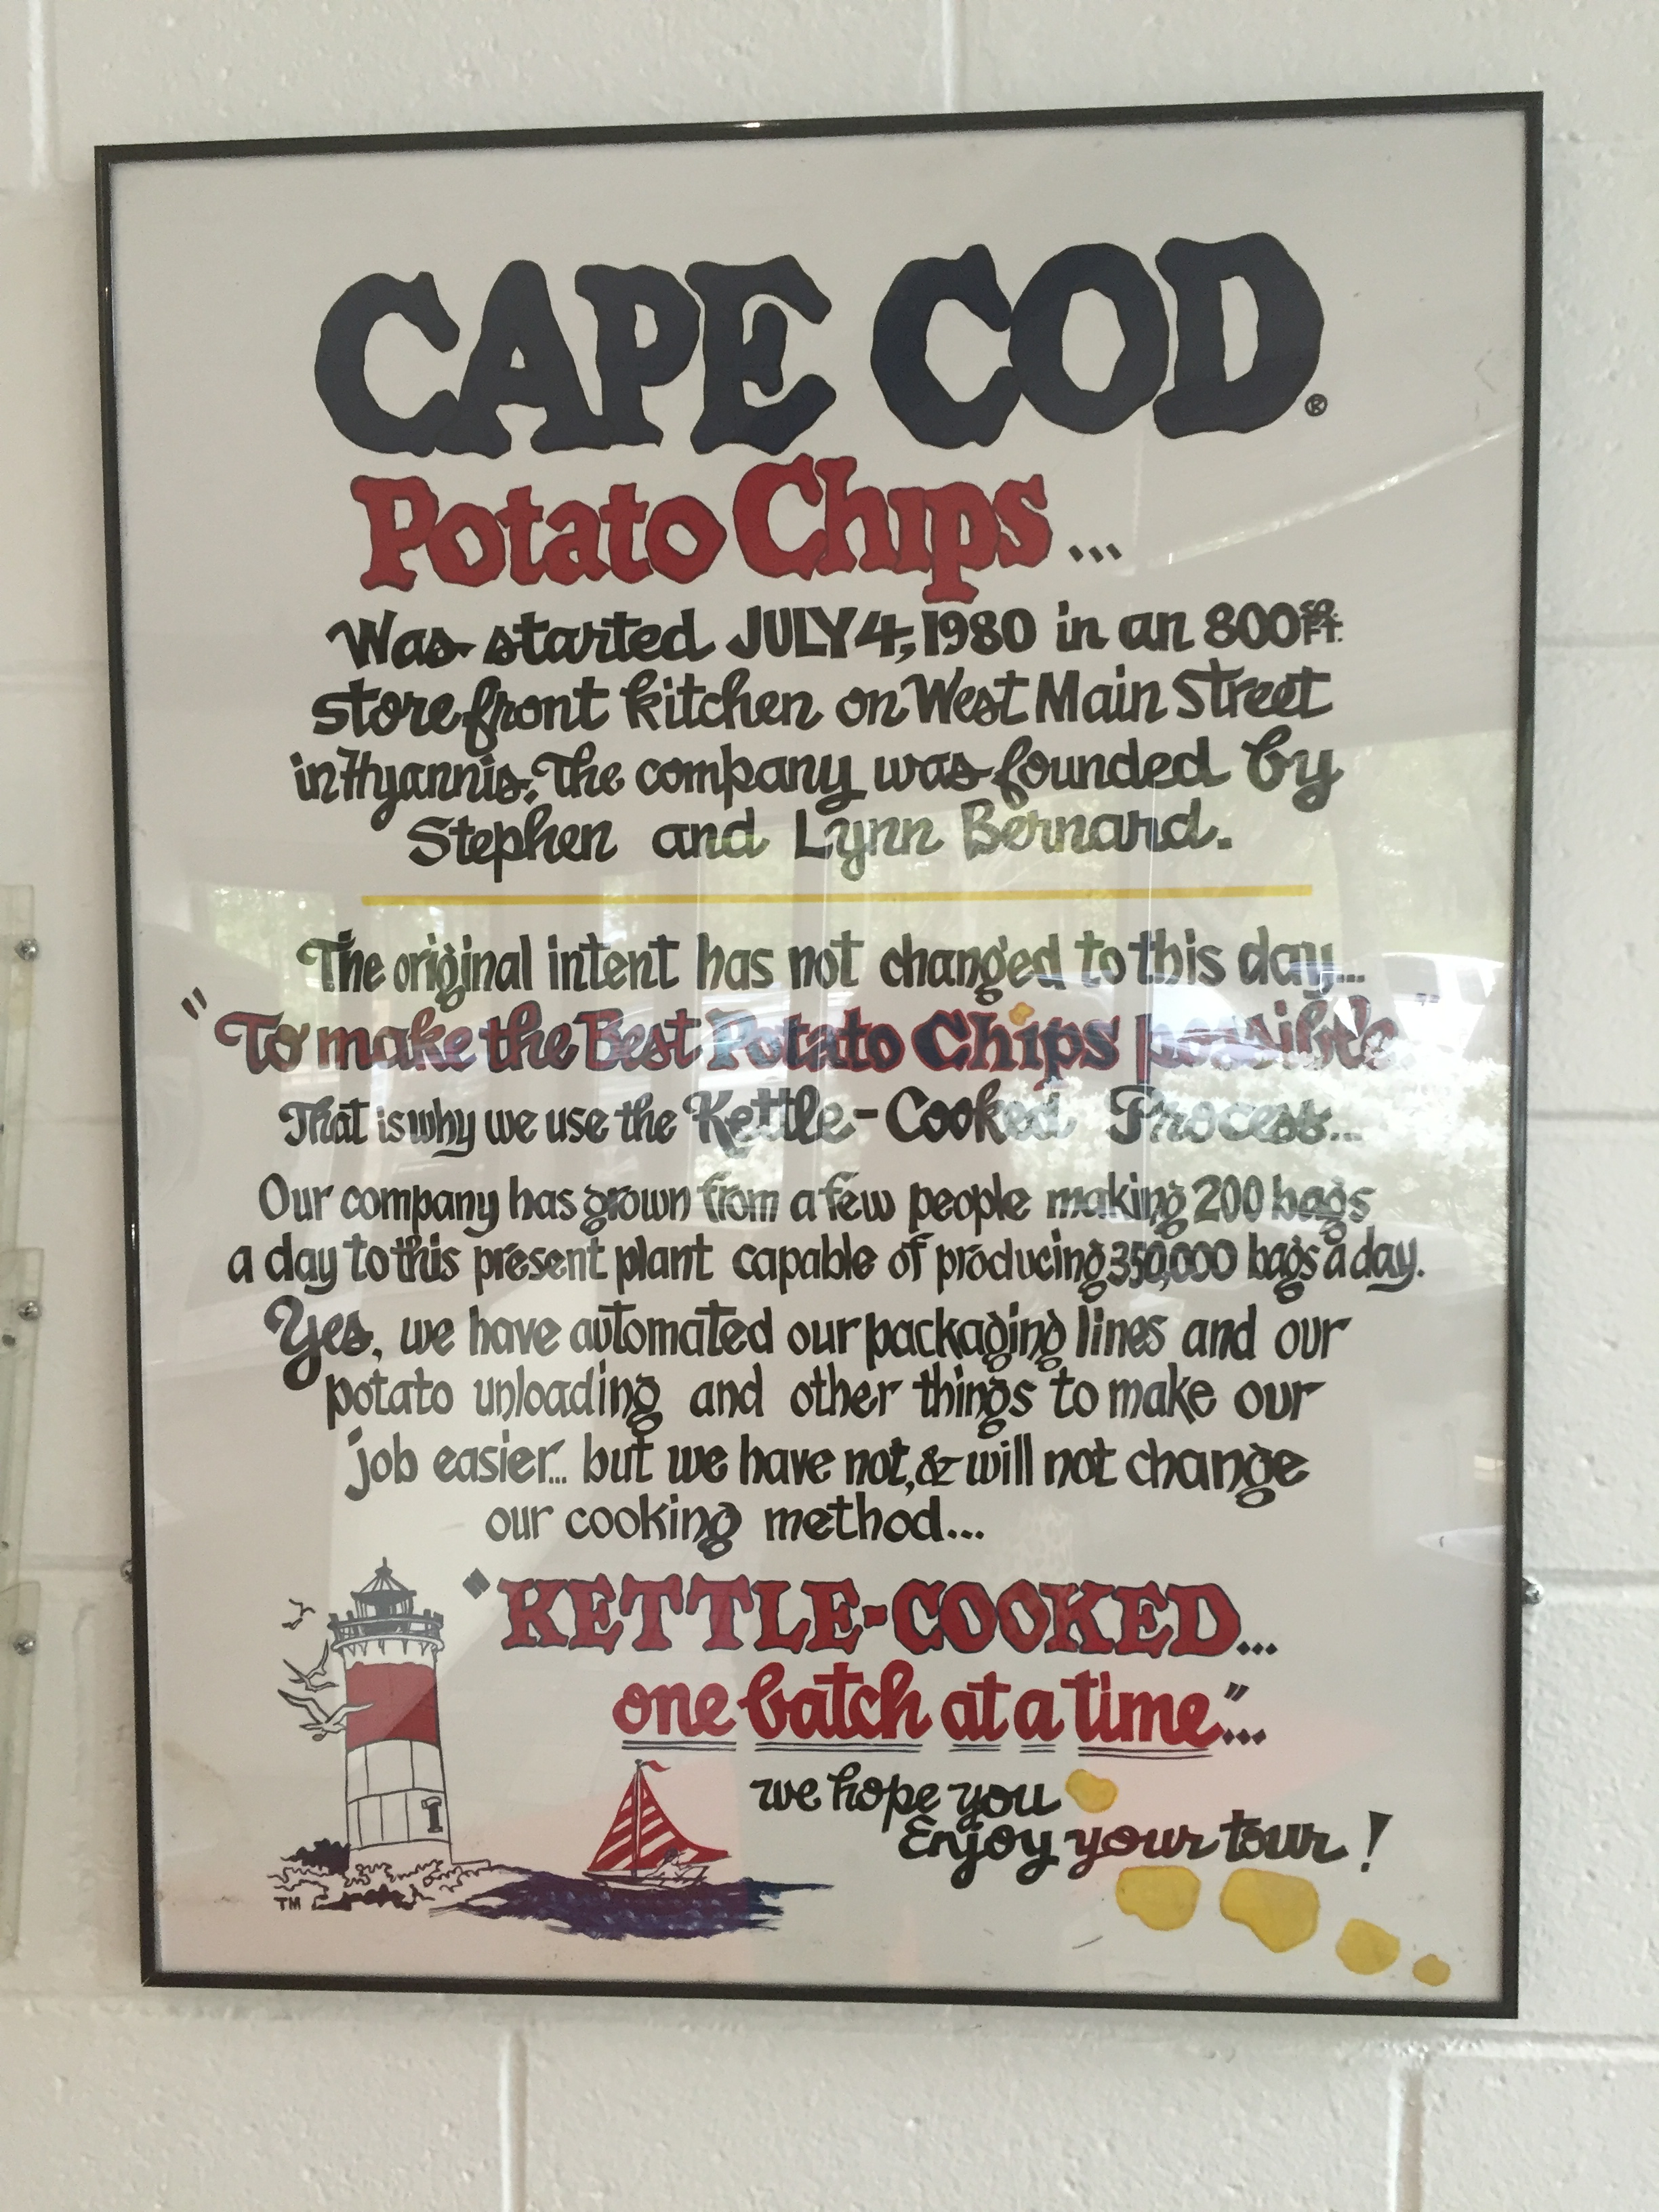 CAPE COD®
Potato Chips...
Was started JULY 4, 1980 in an 800 SQ. FT.
storefront kitchen on West Main Street
in Hyannis. The company was founded by
Stephen and Lynn Bernard.
The original intent has not changed to this day...
"To make the Best Potato Chips possible."
That is why we use the Kettle-Cooked Process...
Our company has grown from a few people making 200 bags
a day to this present plant capable of producing 350,000 bags a day.
Yes, we have automated our packaging lines and our
potato unloading and other things to make our
job easier... but we have not, & will not change
our cooking method...
"KETTLE-COOKED...
one batch at a time"...
we hope you
Enjoy your tour!
TM